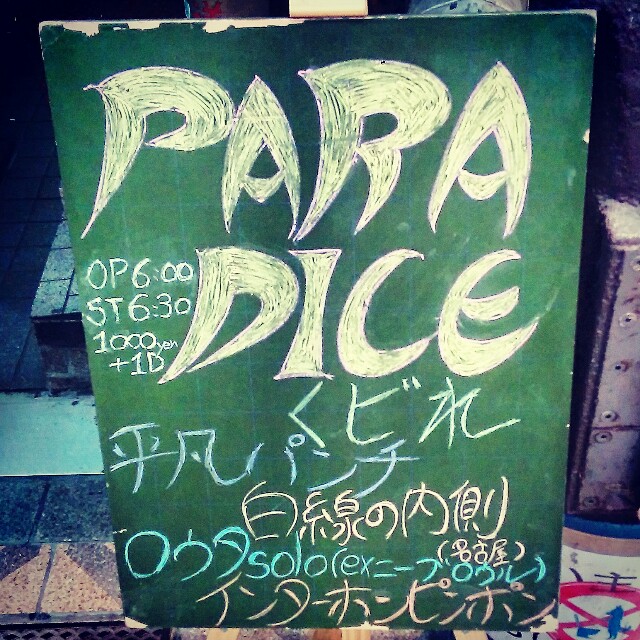 PARA
DICE
OP 6:00
ST 6:30
1000yen
+1D
くピれ
平凡パンチ
白線の内側
(名古屋)
ロウタsolo(exニーブロウル)
インターホンピンポン